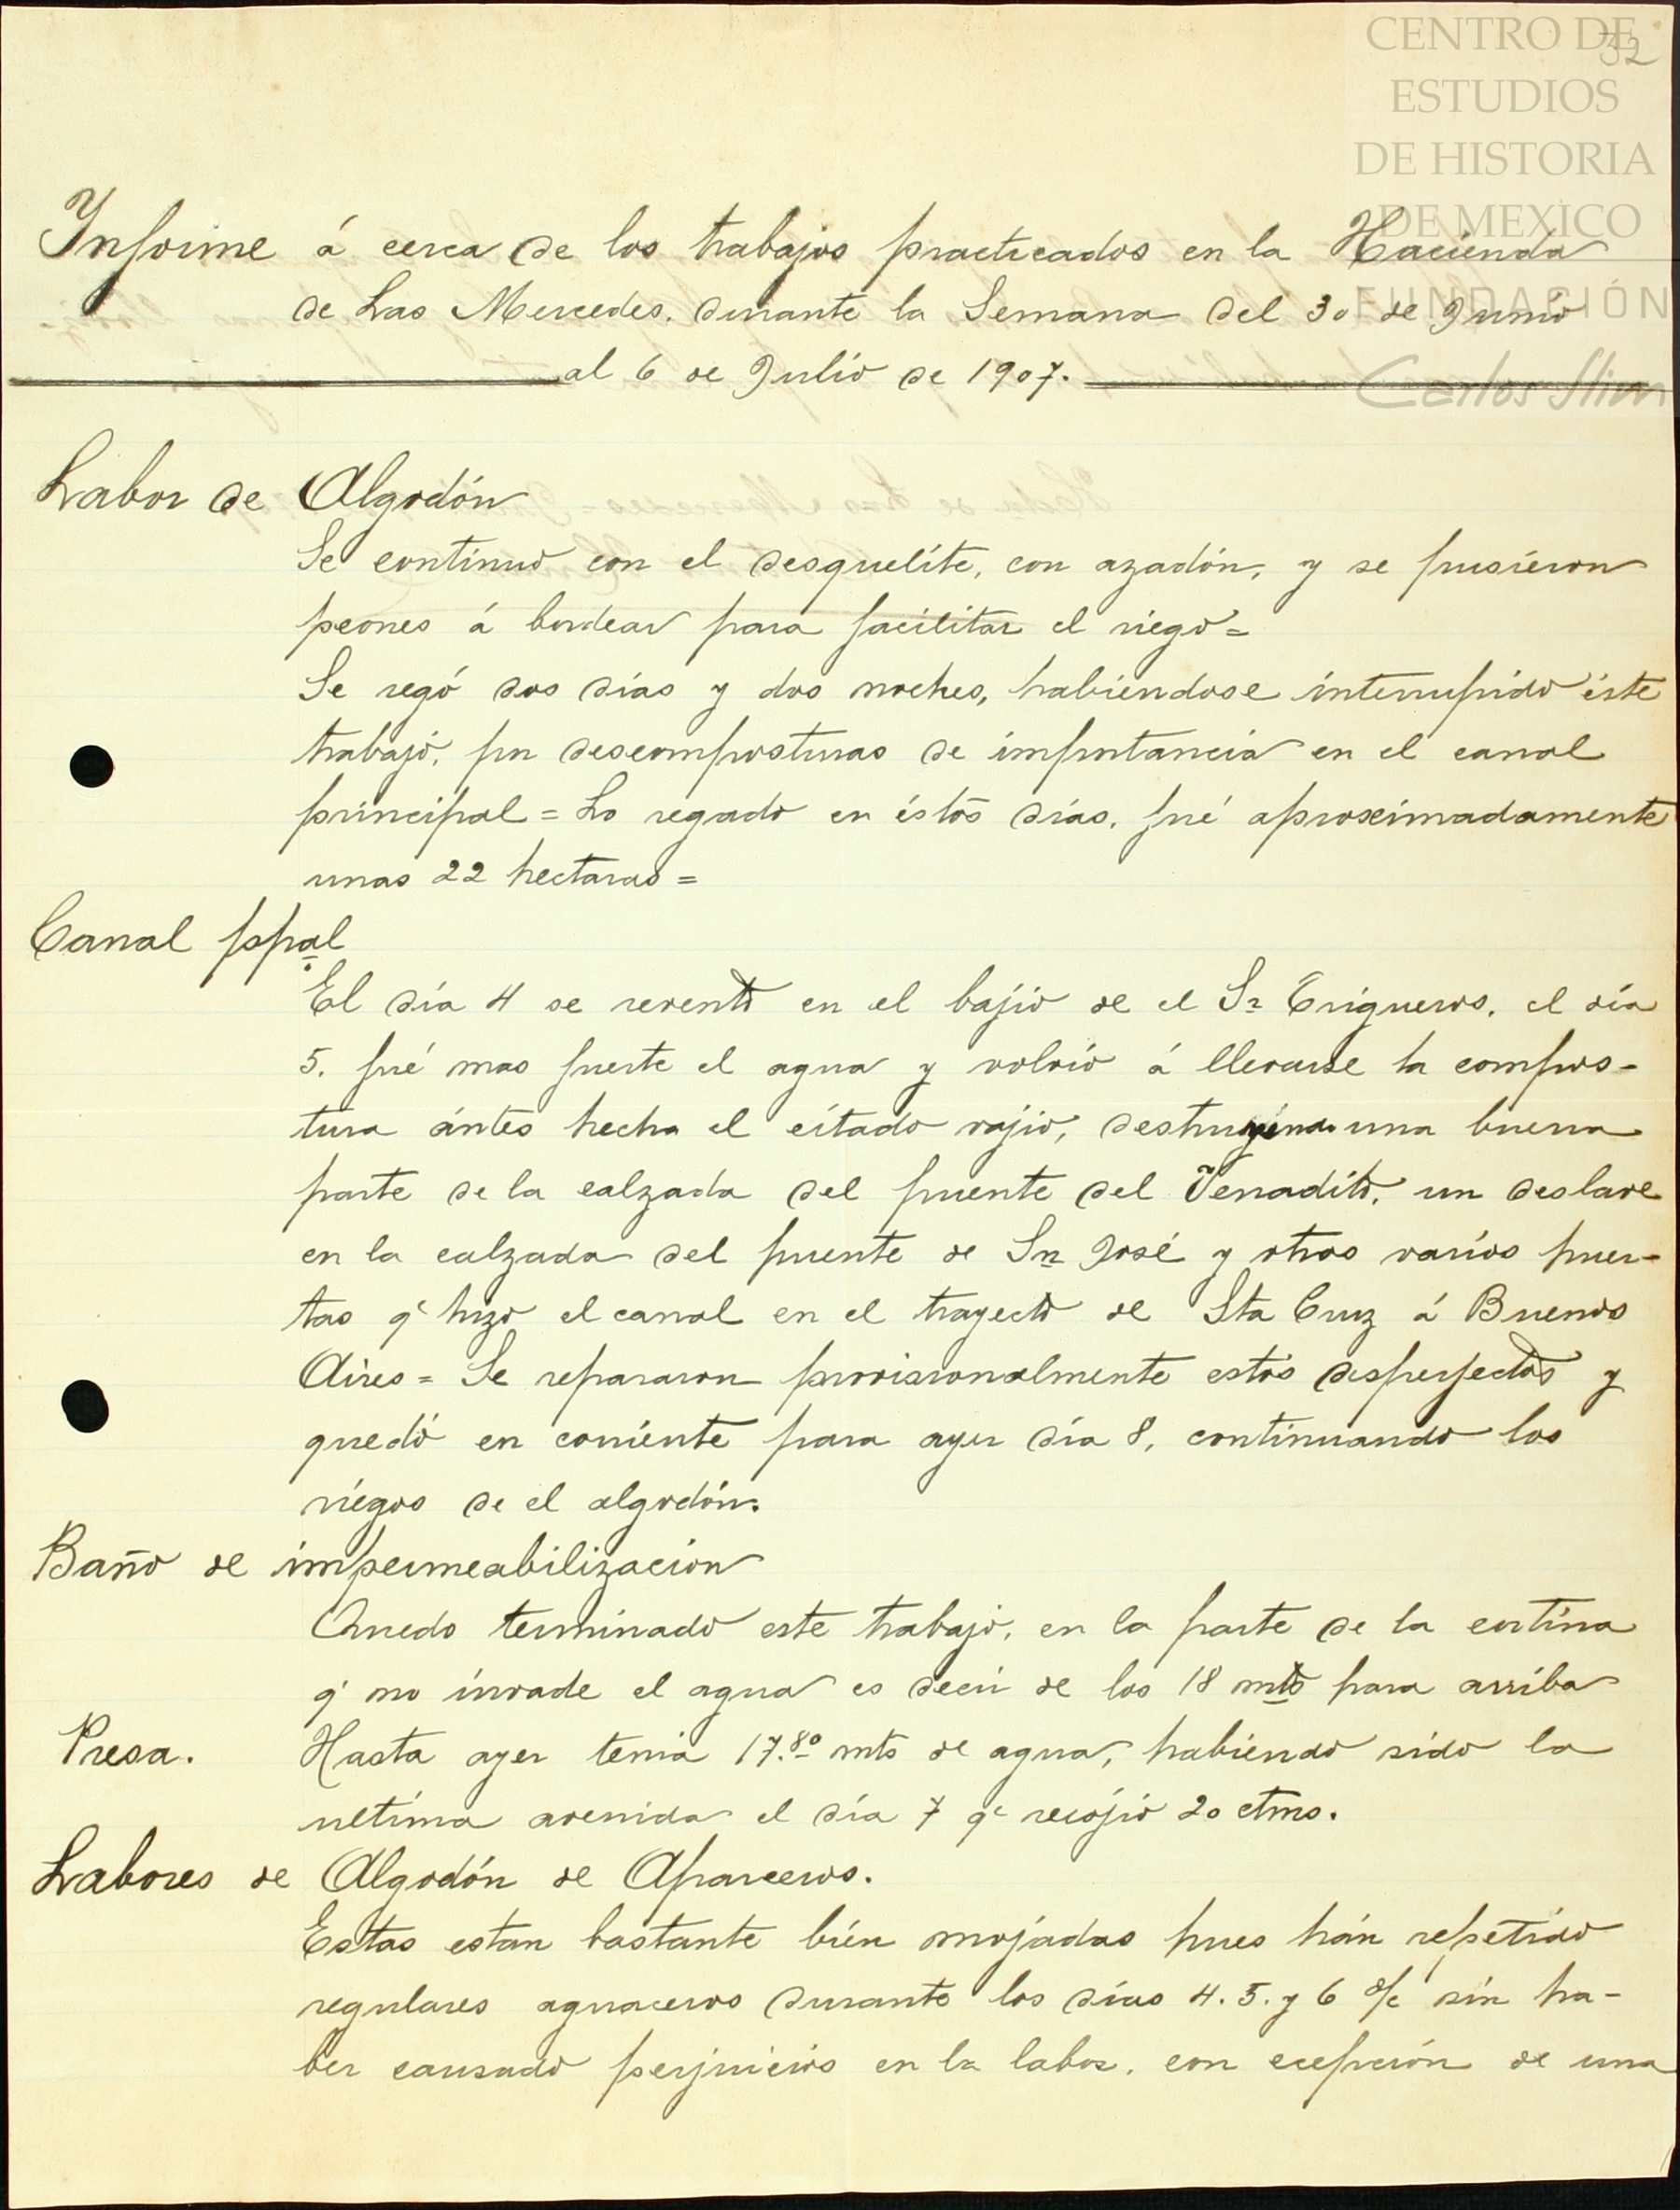 CENTRO DE
ESTUDIOS
DE HISTORIA
DE MEXICO
FUNDACIÓN
Carlos Slim
32
Informe á cerca de los trabajos practicados en la Hacienda
de Las Mercedes. durante la Semana del 30 de Junio
al 6 de Julio de 1907.
Labor de Algodón
Se continuo con el desquelite, con azadón, y se pusieron
peones á bordear para facilitar el riego =
Se regó dos dias y dos noches, habiéndose interrupido éste
trabajo, por descomposturas de importancia en el canal
principal = Lo regado en éstos dias, fué aproximadamente
unas 22 hectaras =
Canal ppal
El día 4 se reventó en el bajio de el Sr Trigueros, el día
5. fué mas fuerte el agua y volvió á llevarse la compos-
tura ántes hecha el citado vajio, destruyendo una buena
parte de la calzada del puente del Venadito, un deslave
en la calzada del puente de Sn José y otros varios puer-
tas qe hizo el canal en el trayecto de Sta Cruz á Buenos
Aires = Se repararon provisionalmente estos desperfectos y
quedó en corriente para ayer día 8, continuando los
riegos de el algodón.
Baño de impermeabilizacion
Quedo terminado este trabajo, en la parte de la cortina
q' no invade el agua es decir de los 18 mts para arriba
Presa. Hasta ayer tenia 17.80 mts de agua, habiendo sido la
ultima avenida el día 7 qe recójio 20 ctms.
Labores de Algodón de Aparceros.
Estas estan bastante bién mojadas pues hán repetido
regulares aguaceros durante los dias 4. 5. y 6 %c sin ha-
ber causado perjuicios en la labor, con ecepción de una